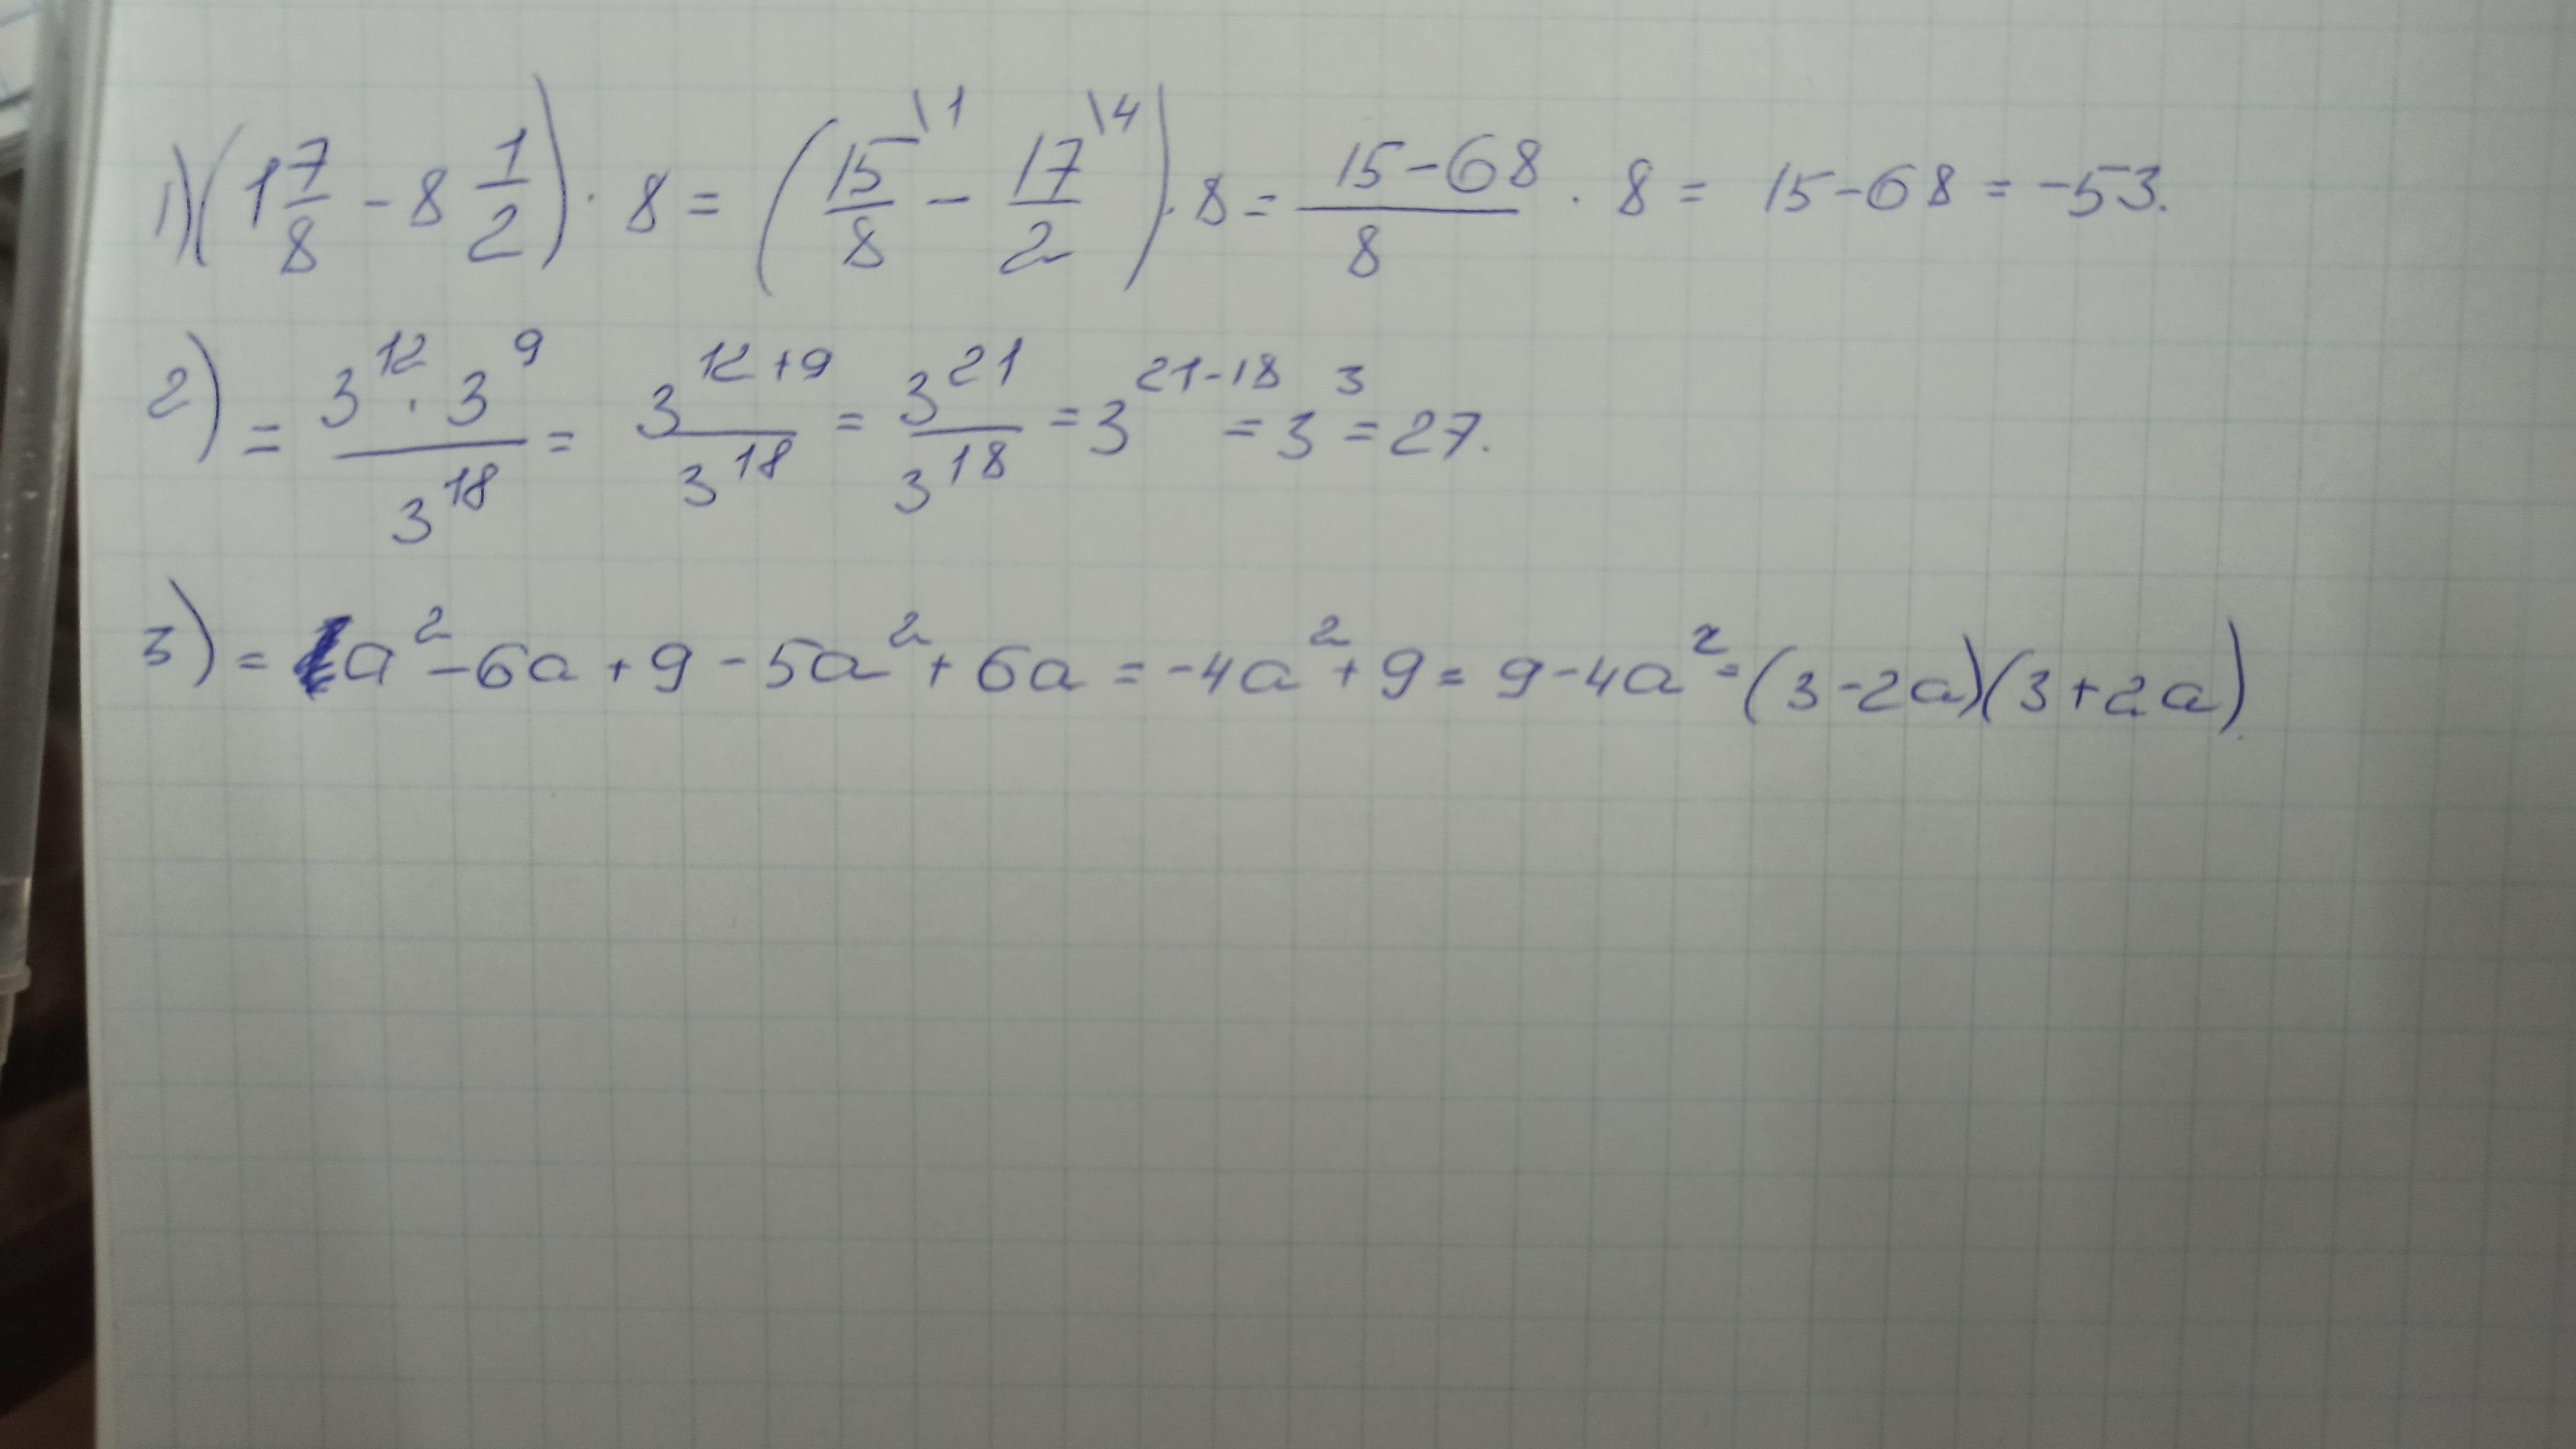 1) (1 7/8 - 8 1/2) · 8 = (15/8 \1 - 17/2 \4) · 8 = (15-68)/8 · 8 = 15-68 = -53.
2) = (3^12 · 3^9)/3^18 = 3^(12+9)/3^18 = 3^21/3^18 = 3^(21-18) = 3^3 = 27.
3) = a² - 6a + 9 - 5a² + 6a = -4a² + 9 = 9 - 4a² = (3-2a)(3+2a).